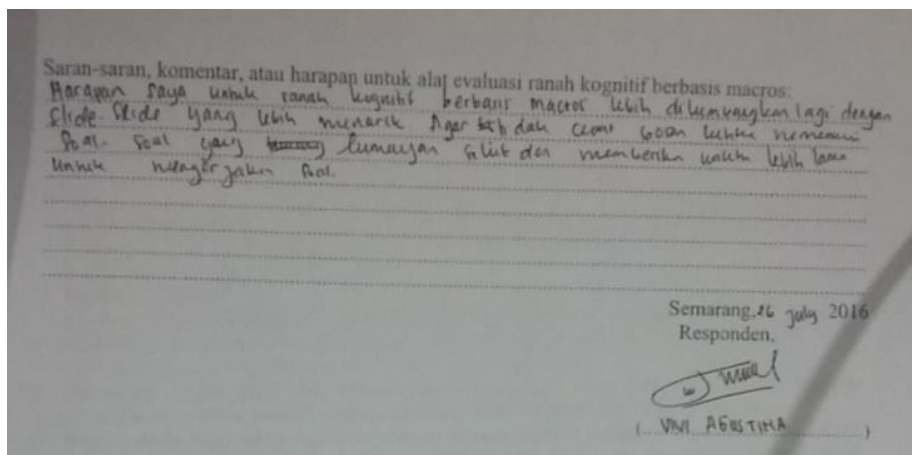 Saran-saran, komentar, atau harapan untuk alat evaluasi ranah kognitif berbasis macros:
Harapan saya untuk ranah kognitif berbasis macros lebih dikembangkan lagi dengan
Slide-Slide yang lebih menarik Agar tidak cepat bosan ketika menemui
Soal-Soal yang lumayan sulit dan memberikan waktu lebih lama
untuk mengerjakan Soal.
Semarang, 26 july 2016
Responden,
( VIVI AGUSTINA )